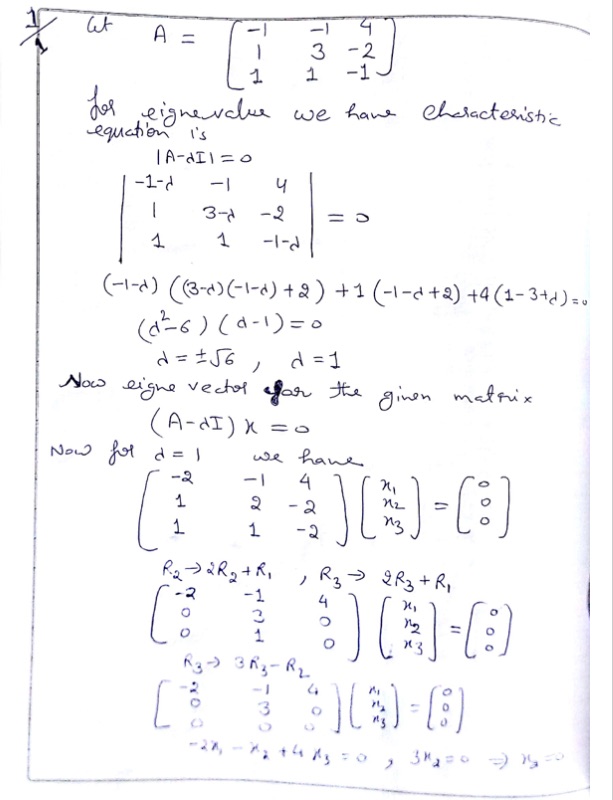 1/1
Let A = [ -1 -1 4
1 3 -2
1 1 -1 ]
for eignevalue we have characteristic
equation is
|A-λI| = 0
| -1-λ -1 4
1 3-λ -2
1 1 -1-λ | = 0
(-1-λ) ((3-λ)(-1-λ)+2) +1 (-1-λ+2) +4 (1-3+λ) = 0
(λ²-6) (λ-1) = 0
λ = ±√6 , λ = 1
Now eigne vector for the given matrix
(A-λI) x = 0
Now for λ = 1 we have
[ -2 -1 4
1 2 -2
1 1 -2 ] [ x₁ x₂ x₃ ] = [ 0 0 0 ]
R₂ → 2R₂ + R₁ , R₃ → 2R₃ + R₁
[ -2 -1 4
0 3 0
0 1 0 ] [ x₁ x₂ x₃ ] = [ 0 0 0 ]
R₃ → 3R₃ - R₂
[ -2 -1 4
0 3 0
0 0 0 ] [ x₁ x₂ x₃ ] = [ 0 0 0 ]
-2x₁ - x₂ + 4x₃ = 0 , 3x₂ = 0 ⇒ x₂ = 0